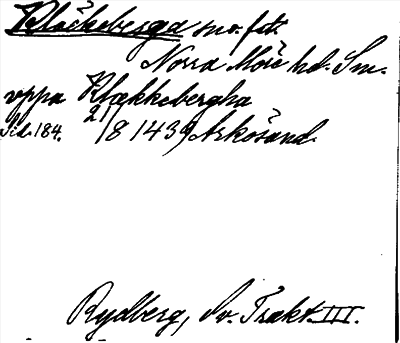 Kläckeberga sn o. fst.
Norra Möre hd. Sm.
vppa Klækkebergha
Sid. 184. 21/8 1439 Arkösund.
Rydberg, Sv. Trakt. III.